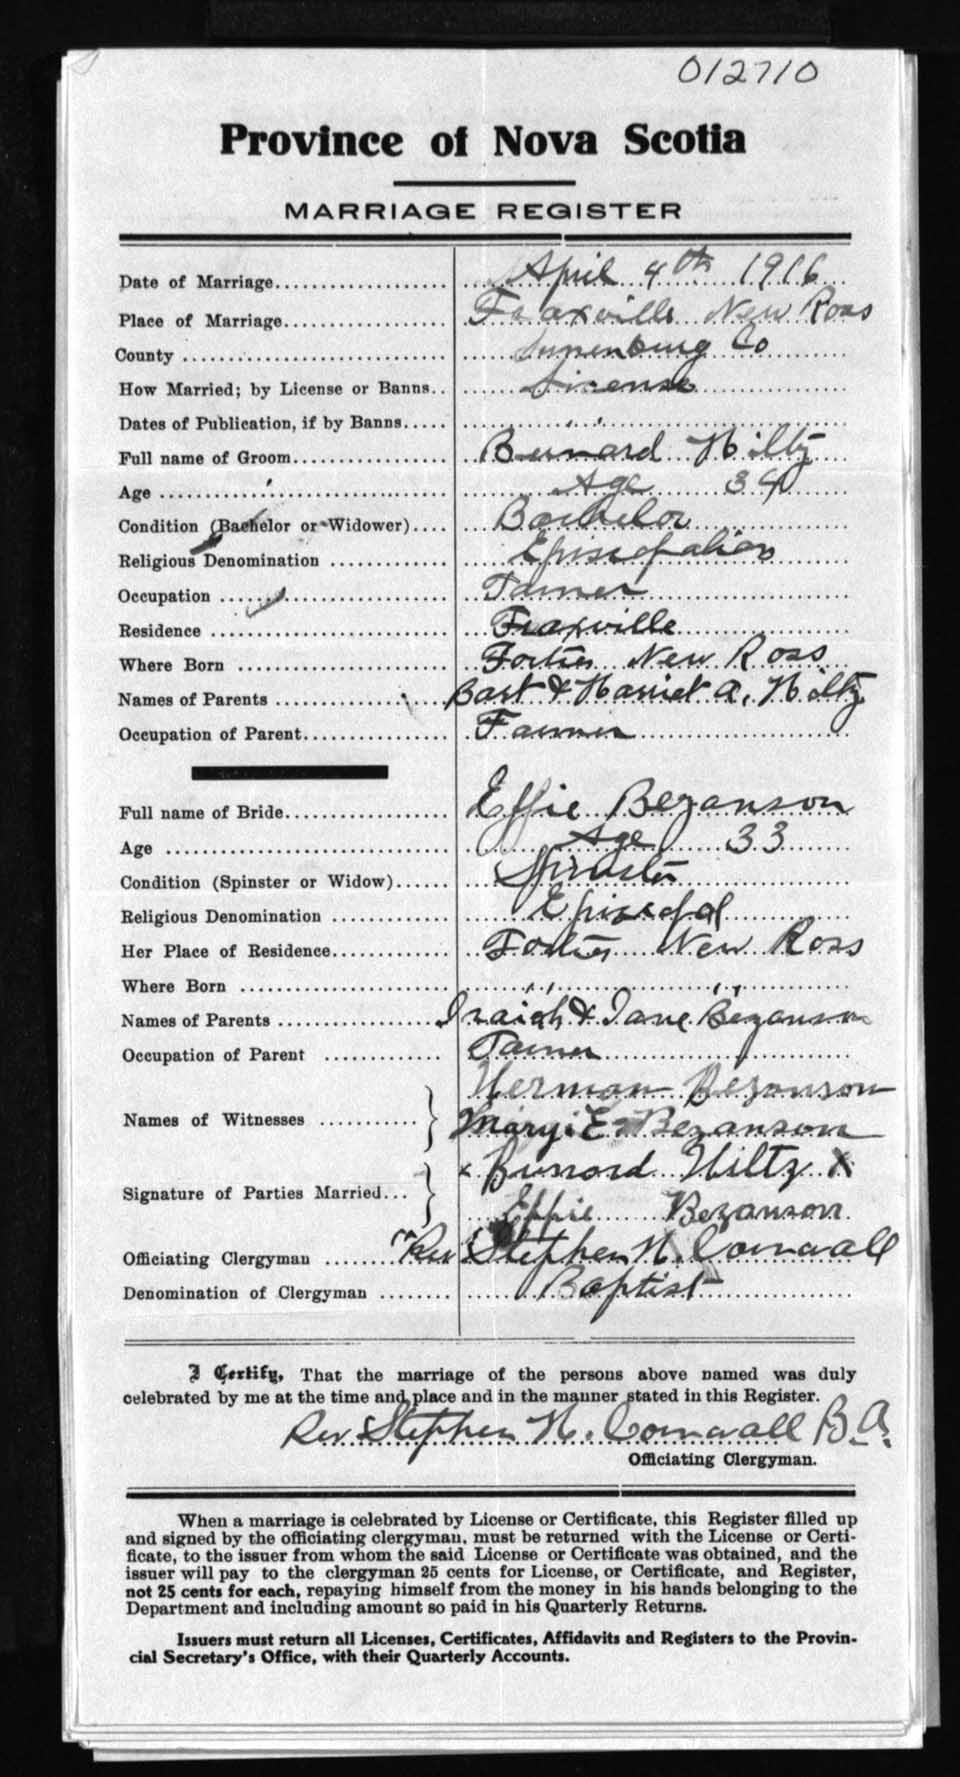 012710
Province of Nova Scotia
MARRIAGE REGISTER
Date of Marriage.................... April 4th 1916
Place of Marriage.................. Fraxville New Ross
County .......................... Lunenburg Co
How Married; by License or Banns.. License
Dates of Publication, if by Banns..... " "
Full name of Groom.................. Burnard Hiltz
Age .......................... Age 34
Condition (Bachelor or Widower).... Bachelor
Religious Denomination ............. Episcopalian
Occupation ........................ Farmer
Residence ......................... Fraxville
Where Born ........................ Forties New Ross
Names of Parents .................. Bart & Harriet A. Hiltz
Occupation of Parent................ Farmer
Full name of Bride.................. Effie Bezanson
Age .............................. Age 33
Condition (Spinster or Widow)...... Spinster
Religious Denomination ............ Episcopal
Her Place of Residence............. Forties New Ross
Where Born ........................ " "
Names of Parents .................. Isaiah & Jane Bezanson
Occupation of Parent .............. Farmer
Herman Bezanson
Names of Witnesses ........... Mary E Bezanson
x Burnard Hiltz x
Signature of Parties Married...
Effie Bezanson
Officiating Clergyman ........ "Rev Stephen N. Cornwall
Denomination of Clergyman ........ Baptist
I Certify, That the marriage of the persons above named was duly
celebrated by me at the time and place and in the manner stated in this Register.
Rev Stephen N. Cornwall B.A.
Officiating Clergyman.
When a marriage is celebrated by License or Certificate, this Register filled up
and signed by the officiating clergyman, must be returned with the License or Certi-
ficate, to the issuer from whom the said License or Certificate was obtained, and the
issuer will pay to the clergyman 25 cents for License, or Certificate, and Register,
not 25 cents for each, repaying himself from the money in his hands belonging to the
Department and including amount so paid in his Quarterly Returns.
Issuers must return all Licenses, Certificates, Affidavits and Registers to the Provin-
cial Secretary's Office, with their Quarterly Accounts.